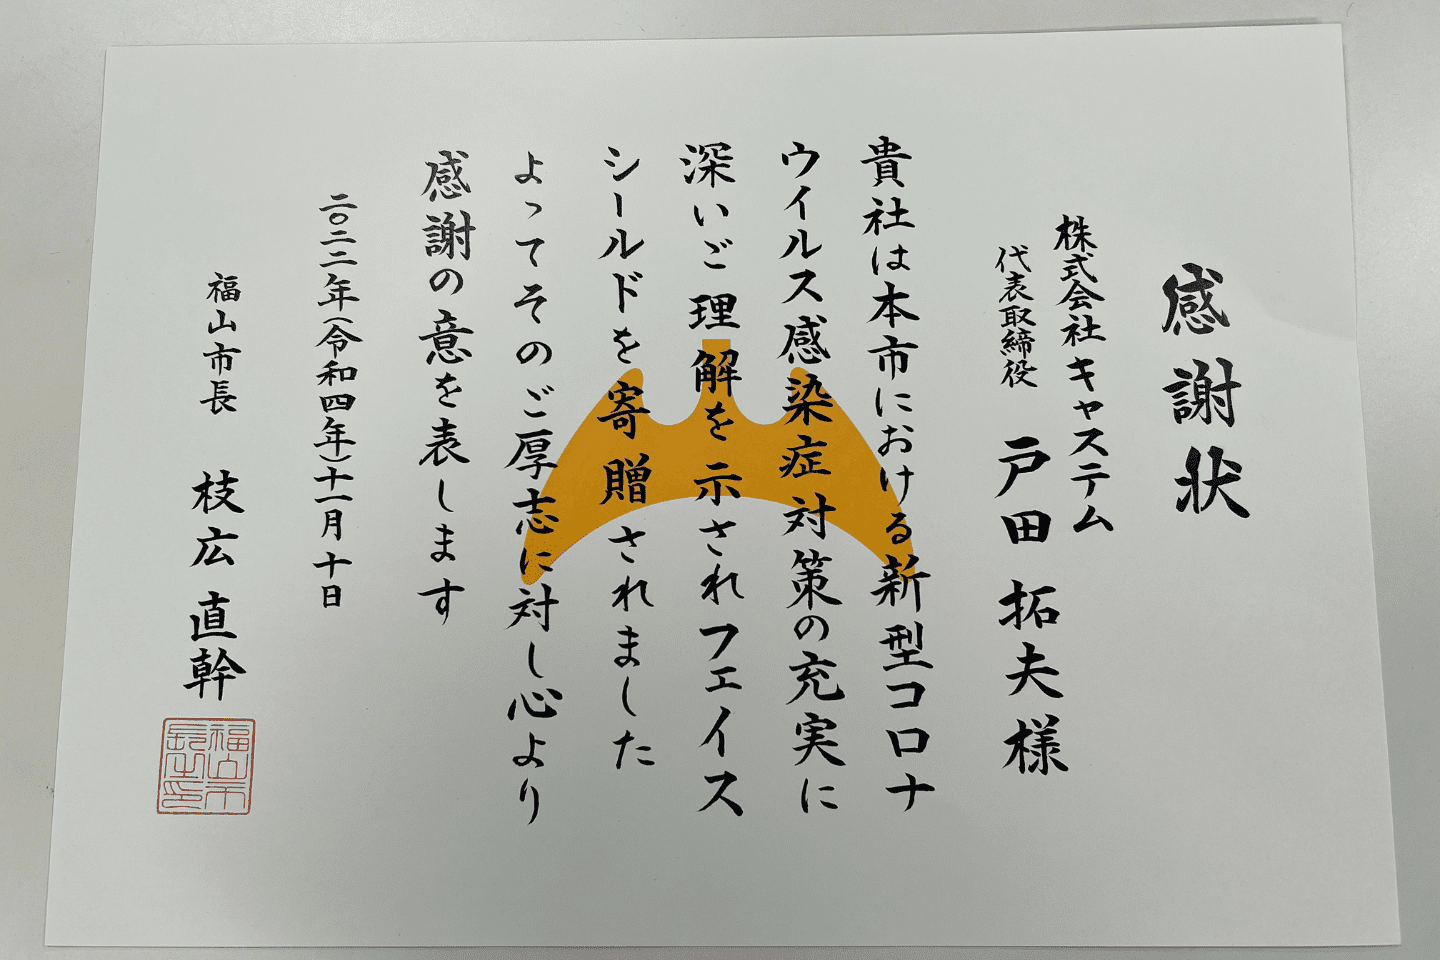 感謝状
株式会社キャステム
代表取締役 戸田 拓夫様
貴社は本市における新型コロナ
ウイルス感染症対策の充実に
深いご理解を示されフェイス
シールドを寄贈されました
よってそのご厚志に対し心より
感謝の意を表します
二〇二二年(令和四年)十一月十日
福山市長 枝広 直幹
福山市長之印